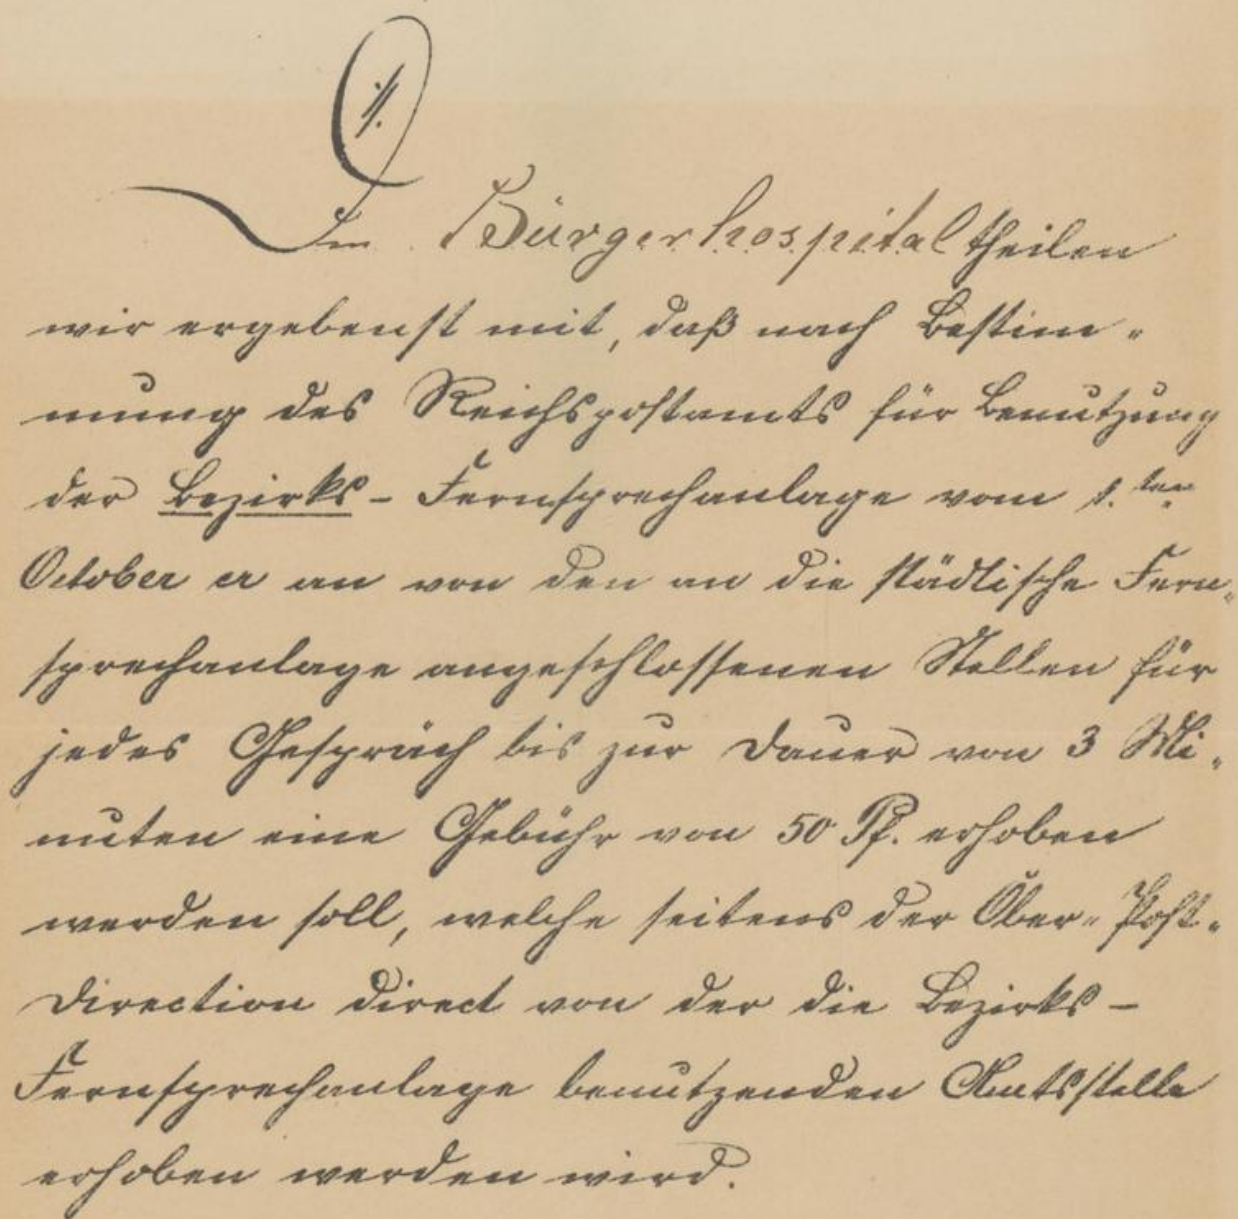 Dem Bürgerhospital theilen
wir ergebenst mit, daß nach Bestim-
mung des Reichspostamts für Benutzung
der Bezirks-Fernsprechanlage vom 1.ten
October cr an von den an die städtische Fern-
sprechanlage angeschlossenen Stellen für
jedes Gespräch bis zur Dauer von 3 Mi-
nuten eine Gebühr von 50 Pf. erhoben
werden soll, welche seitens der Ober-Post-
Direction direct von der die Bezirks-
Fernsprechanlage benutzenden Amtsstelle
erhoben werden wird.